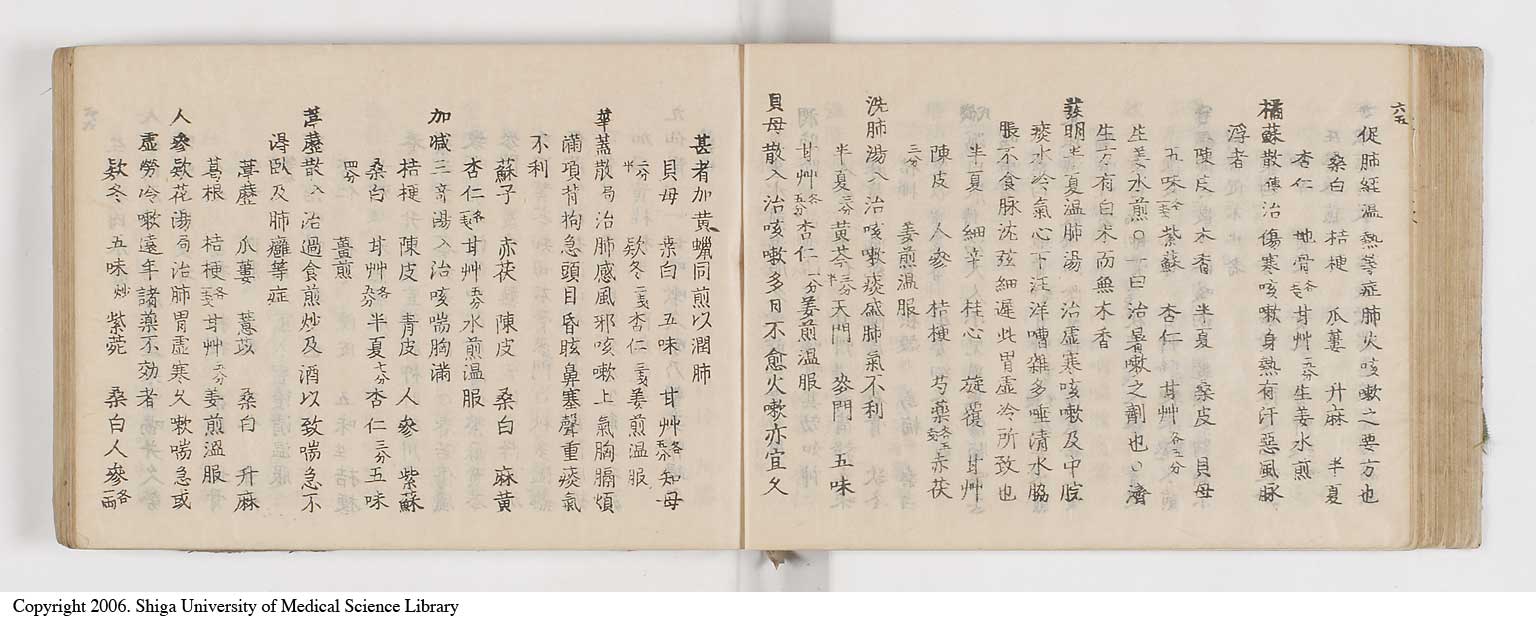 六五
促肺経温熱等症肺火咳嗽之要方也
桑白 桔梗 瓜蔞 升麻 半夏
杏仁 地骨各 甘艸二分 生姜水煎
橘蘇散 傅 治傷寒咳嗽身熱有汗惡風脉
浮者
陳皮 木香 半夏 桑皮 貝母
五味 紫蘇 杏仁 甘艸
生姜水煎○一曰治暑嗽之劑也○濟
生方有白朮而無木香
蘇明半夏温肺湯 治虚寒咳嗽及中脘
痰水冷氣心下汪洋嘈雜多唾清水脇
脹不食脉沈弦細遲此胃虚冷所致也
半夏 細辛 桂心 旋覆 甘艸
陳皮 人參 桔梗 芍藥 赤茯
三分 姜煎温服
洗肺湯 入 治咳嗽痰盛肺氣不利
半夏 黄芩 天門 麥門 五味
甘艸 杏仁一分 姜煎温服
貝母散 入 治咳嗽多日不愈火嗽亦宜久
甚者加黄蠟同煎以潤肺
貝母 桒白 五味 甘艸 知母
款冬 杏仁 姜煎温服
華蓋散 局 治肺感風邪咳嗽上氣胸膈煩
滿項背拘急頭目昏眩鼻塞聲重痰氣
不利
蘇子 赤茯 陳皮 桑白 麻黄
杏仁 甘艸五分 水煎温服
加減三奇湯 入 治咳喘胸滿
桔梗 陳皮 青皮 人參 紫蘇
桑白 甘艸 半夏七分 杏仁三分 五味
四分 薑煎
葶藶散 治過食煎炒及酒以致喘急不
得臥及肺癰等症
葶藶 瓜蔞 薏苡 桑白 升麻
葛根 桔梗 甘艸 姜煎温服
人參款花湯 局 治肺胃虚寒久嗽喘急或
虚勞冷嗽遠年諸藥不効者
款冬 五味炒 紫菀 桑白 人參各一両